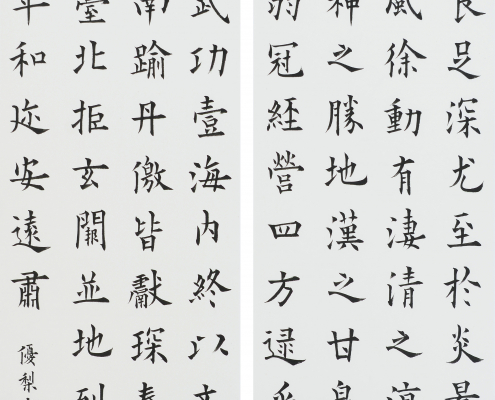 良足深尤至於炎景
風徐動有淒清之涼
神之勝地漢之甘泉
弱冠經營四方逮乎
武功壹海內終以文
南踰丹徼皆獻琛奉
臺北拒玄闕並地列
年和迩安遠肅
優梨